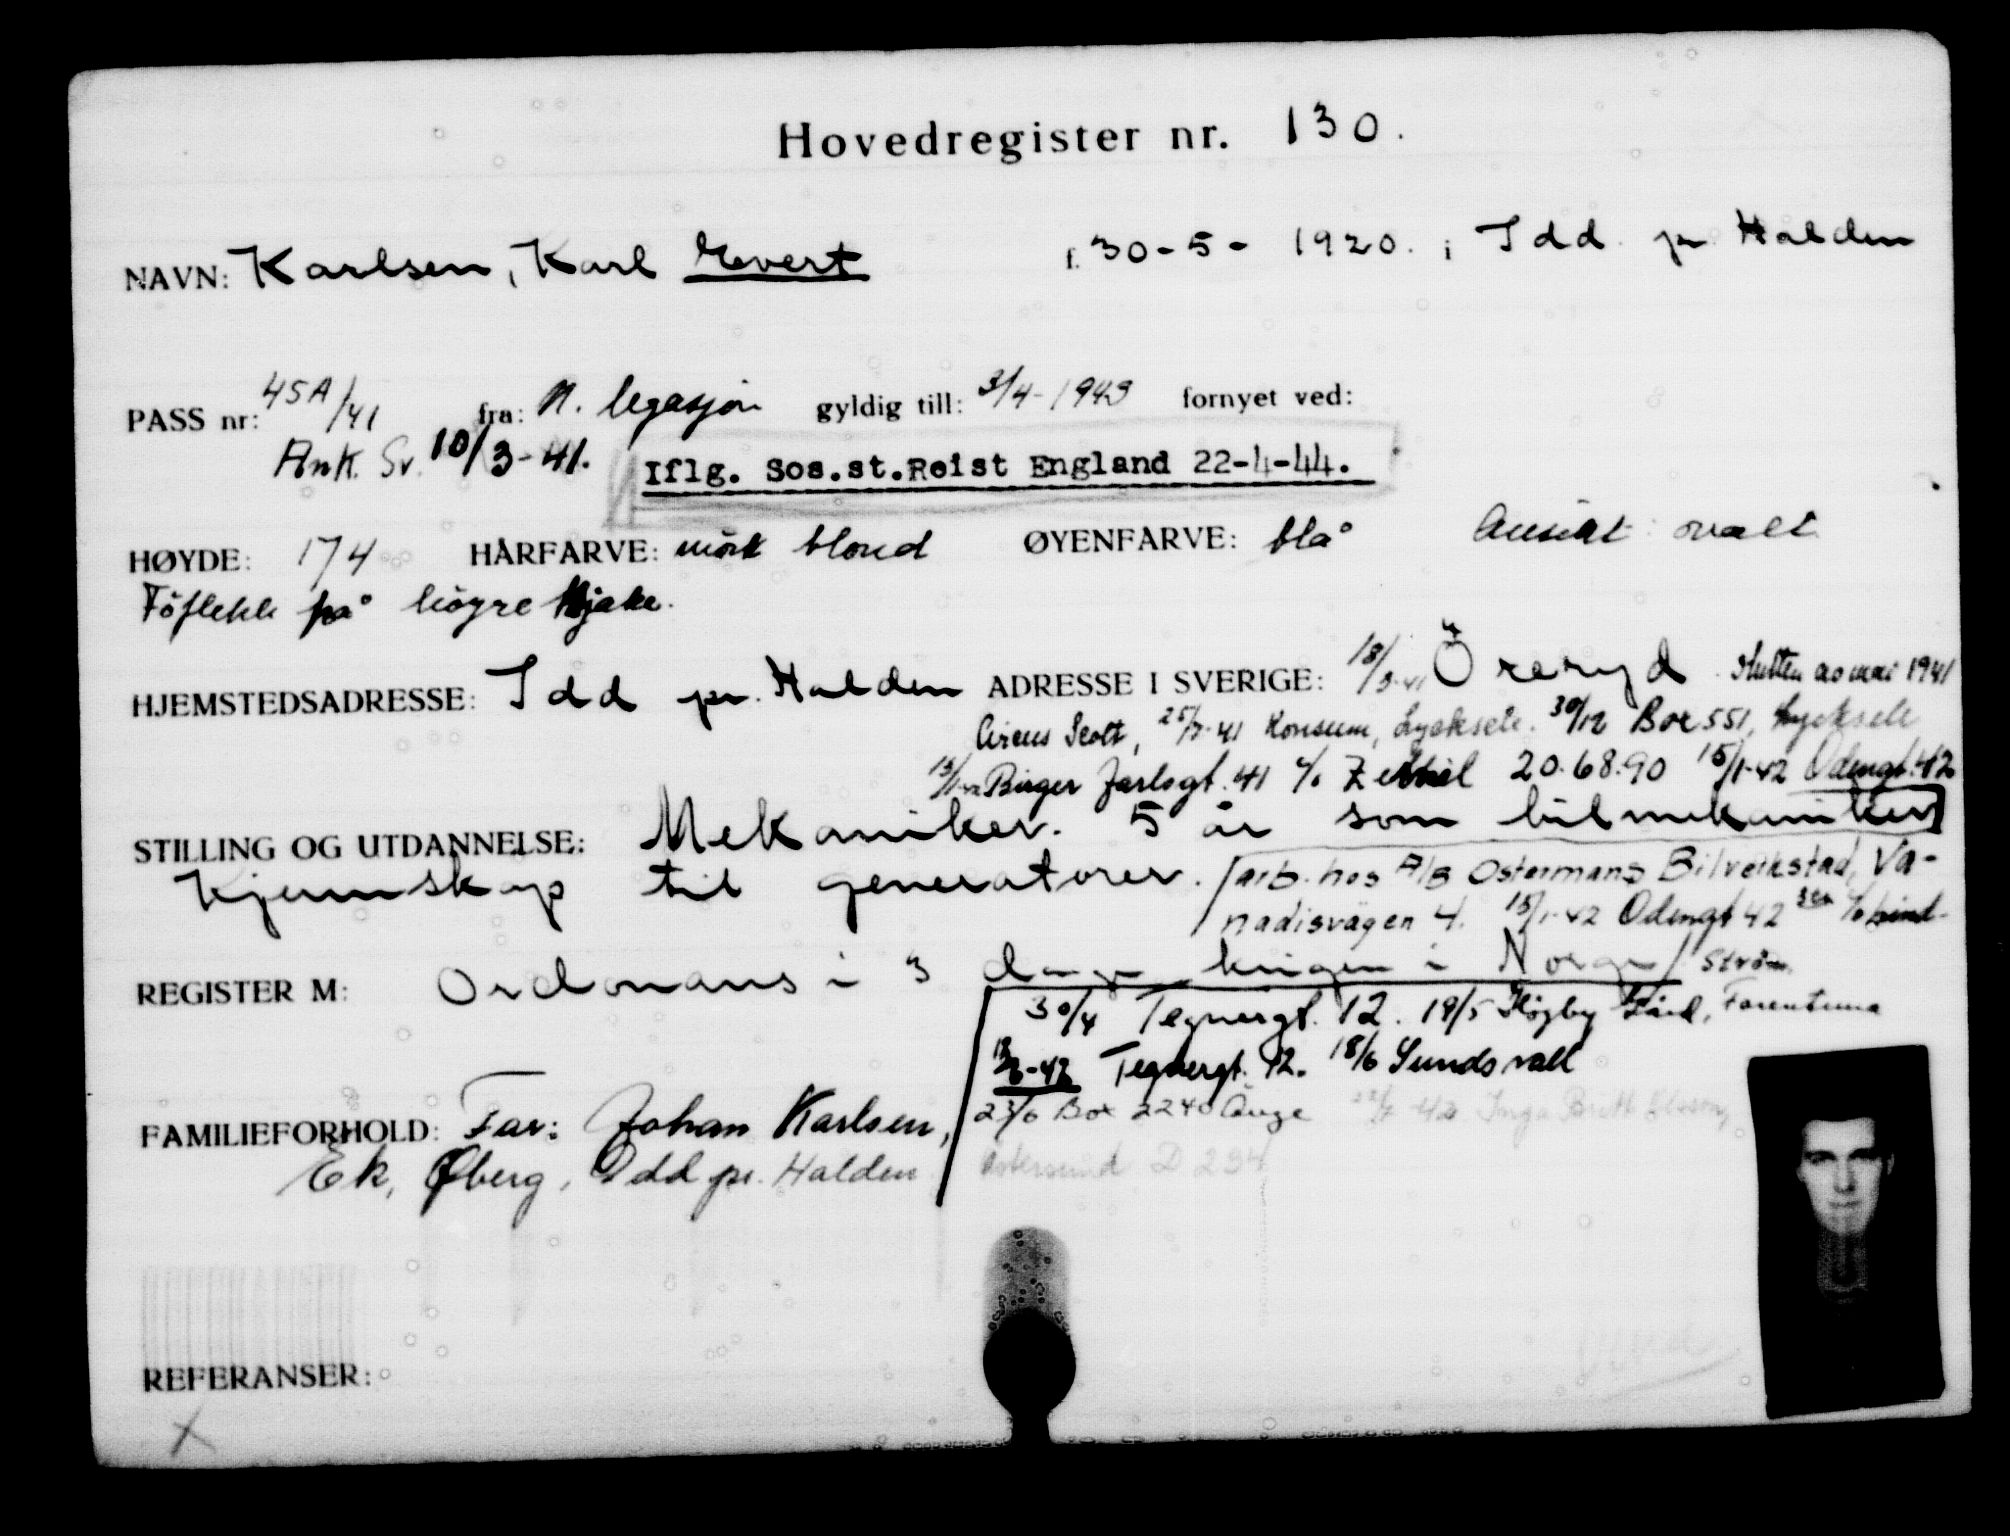 Hovedregister nr. 130.
NAVN: Karlsen, Karl Evert f. 30-5-1920. i Idd pr. Halden
PASS nr: 45A/41 fra: N. legasjon gyldig till: 3/4-1943 fornyet ved:
Ank. Sv. 10/3-41. Iflg. Sos.st.Reist England 22-4-44.
HØYDE: 174 HÅRFARVE: mörk blond ØYENFARVE: blå Ansikt: ovalt
Föflekk på högre kjake.
HJEMSTEDSADRESSE: Idd pr. Halden ADRESSE I SVERIGE: 18/3-41 Öreryd. mai 1941
Circus Scott, 25/7-41 Konsum, Lycksele. 30/12 Box 551, Lycksele
Birger Jarlsgt. 41 c/o 20.68.90 15/1-42 Odengt. 42
STILLING OG UTDANNELSE: Mekaniker. 5 år som bilmekaniker
Kjennskap til generatorer. arb. hos A/B Ostermans Bilverkstad, Va-
nadisvägen 4. 15/1-42 Odengt 42 c/o Lind-
REGISTER M: Ordonans i 3 dage krigen i Norge Ström
30/4 Tegnergt. 12. 19/5 Högby Gård, Farentuna
Tegnergt. 12. 18/6 Sundsvall
FAMILIEFORHOLD: Far: Johan Karlsen, 23/6 Box 2240 Ånge 42 Inga Britt
Ek, Øberg, Idd pr. Halden Östersund D 234
REFERANSER:
x